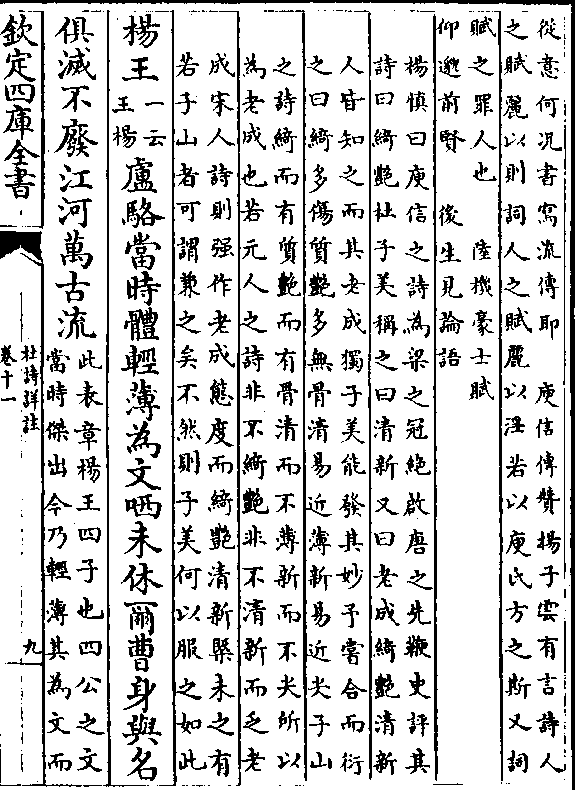 從意何况書寫流傳耶　庾信傳贊揚子雲有言詩人
之賦麗以則詞人之賦麗以淫若以庾氏方之斯又詞
賦之罪人也　陸機豪士賦
仰邈前賢　後生見論語
楊慎曰庾信之詩為梁之冠絶啟唐之先鞭史評其
詩曰綺艶杜子美稱之曰清新又曰老成綺艶清新
人皆知之而其老成獨子美能發其妙予嘗合而衍
之曰綺多傷質艶多無骨清易近薄新易近尖子山
之詩綺而有質艶而有骨清而不薄新而不尖所以
為老成也若元人之詩非不綺艶非不清新而乏老
成宋人詩則强作老成態度而綺艶清新槩未之有
若子山者可謂兼之矣不然則子美何以服之如此
楊王一云王楊盧駱當時體輕薄為文哂未休爾曹身與名
俱滅不廢江河萬古流此表章楊王四子也四公之文當時傑出今乃輕薄其為文而
欽定四庫全書
杜詩詳註
卷十一
九